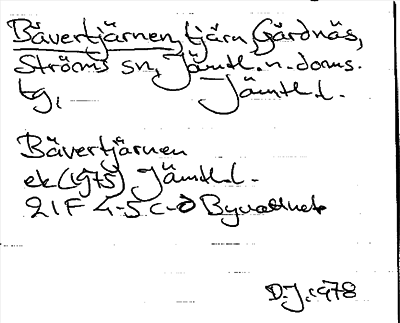 Bävertjärnen, tjärn, Gärdnäs,
Ströms sn, Jämtl. n. doms.
tg, Jämtl. l.
Bävertjärnen
ek (1975) Jämtl. l.
21F 4-5 c-d Byvattnet
D.J. 1978